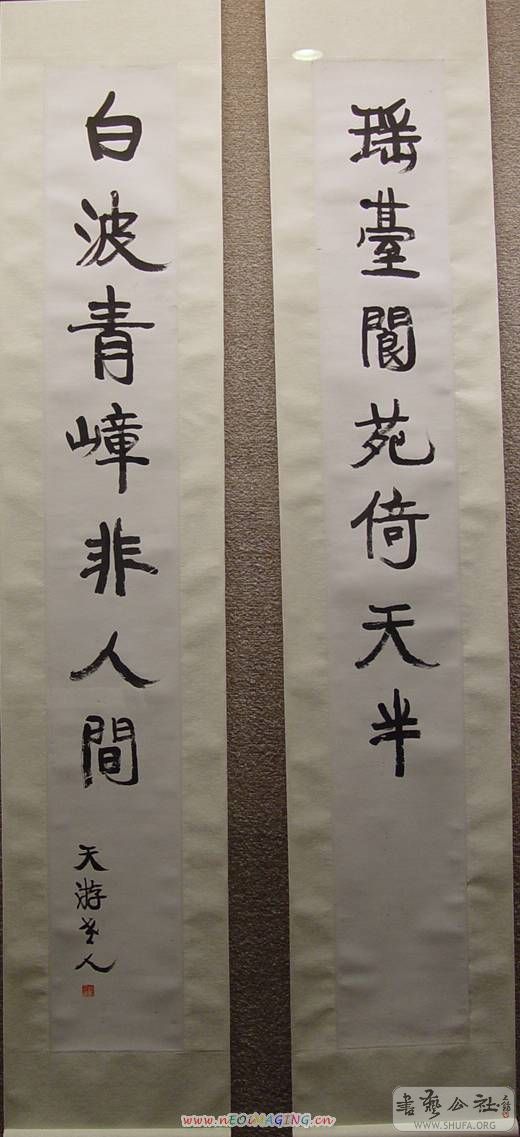 瑶臺閬苑倚天半
白波青嶂非人間
天游老人
www.nEOiMAGING.cn
書藝公社
WWW.SHUFA.ORG